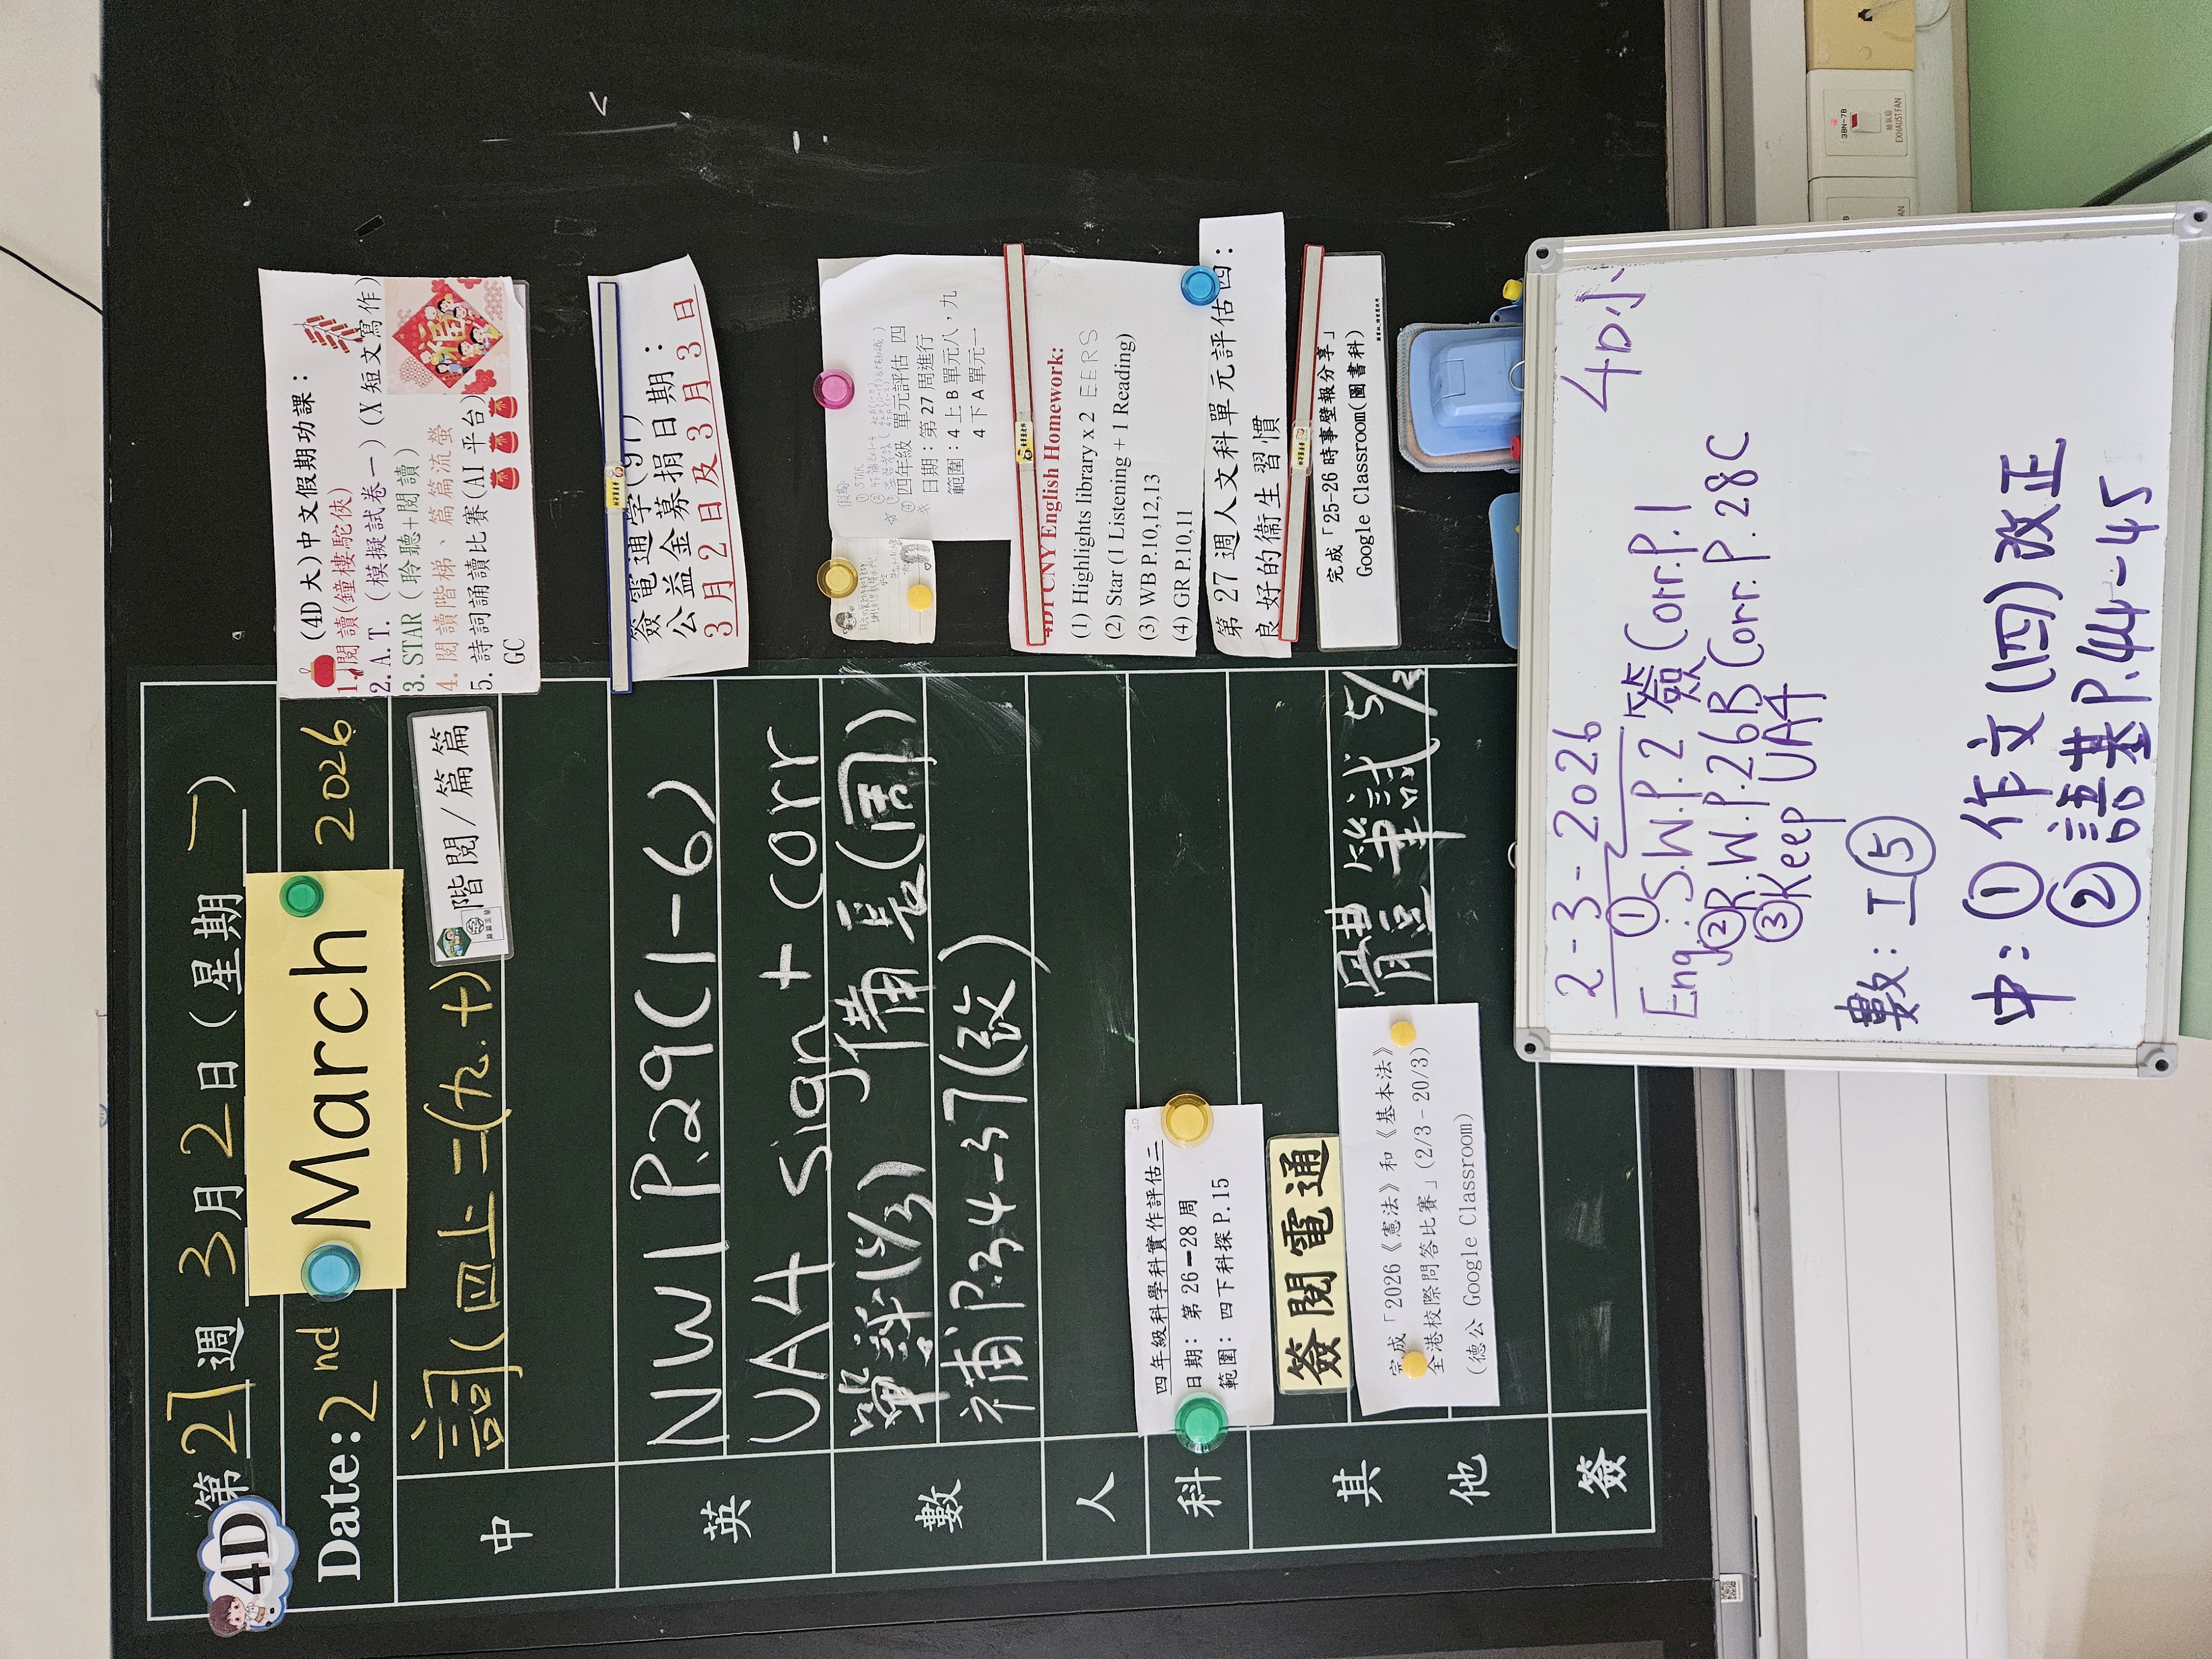 4D
第27週 3月2日(星期一)
Date: 2nd March 2026
中
詞(四上二(九.十)
階閱/篇篇
英
NW1 P.29(1-6)
UA4 sign + corr
數
單評(5/3)
補P.34-37(改)
人
科
四年級科學科實作評估二
日期: 第 26-28 周
範圍: 四下科探 P.15
其他
簽閱電通
完成「2026《憲法》和《基本法》
全港校際問答比賽」(2/3 - 20/3)
(德公 Google Classroom)
體筆試 5/3
簽
(4D大)中文假期功課:
1.閱讀(鐘樓駝俠)
2. A. T. (模擬試卷一) (X 短文寫作)
3. STAR (聆聽+閱讀)
4. 閱讀階梯、篇篇流螢
5. 詩詞誦讀比賽(AI 平台)
GC
福
簽電通字(97)
公益金募捐日期:
3月2日及3月3日
四年級 單元評估 四
日期:第27周進行
範圍:4上B單元八,九
4下A單元一
4D1 CNY English Homework:
(1) Highlights library x 2 EERS
(2) Star (1 Listening + 1 Reading)
(3) WB P.10,12,13
(4) GR P.10,11
第27週人文科單元評估四:
良好的衞生習慣
完成「25-26 時事壁報分享」
Google Classroom(圖書科)
2-3-2026 4D小
Eng: ① S.W.P.2 簽 Corr.P.1
② R.W.P.26B Corr.P.28C
③ Keep UA4
數: 工⑤
中: ① 作文(四)改正
② 語基P.44-45
3BN-7B
抽氣扇
EXHAUST FAN